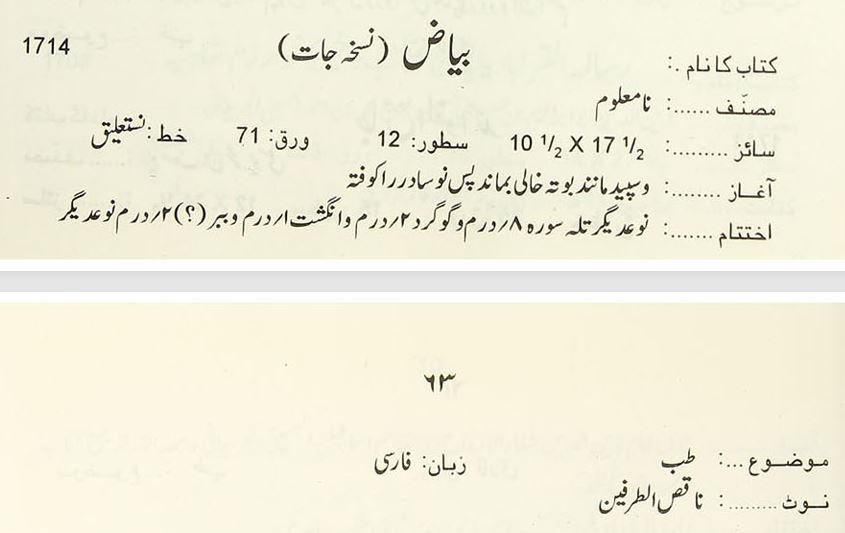 کتاب کا نام .: بیاض (نسخہ جات) 1714
مصنّف ......: نامعلوم
سائز .........: 10 1/2 X 17 1/2 سطور: 12 ورق: 71 خط: نستعلیق
آغاز ........: وسپید مانند بوتہ خالی بماند پس نوسادر را کوفتہ
اختتام .......: نوعدیگر تلہ سورہ ۸/درم وگوگرد ۲/درم وانگشت ا/درم وببر (؟) ۲/درم نوعدیگر
۶۳
موضوع ...: طب زبان: فارسی
نوٹ .........: ناقص الطرفین